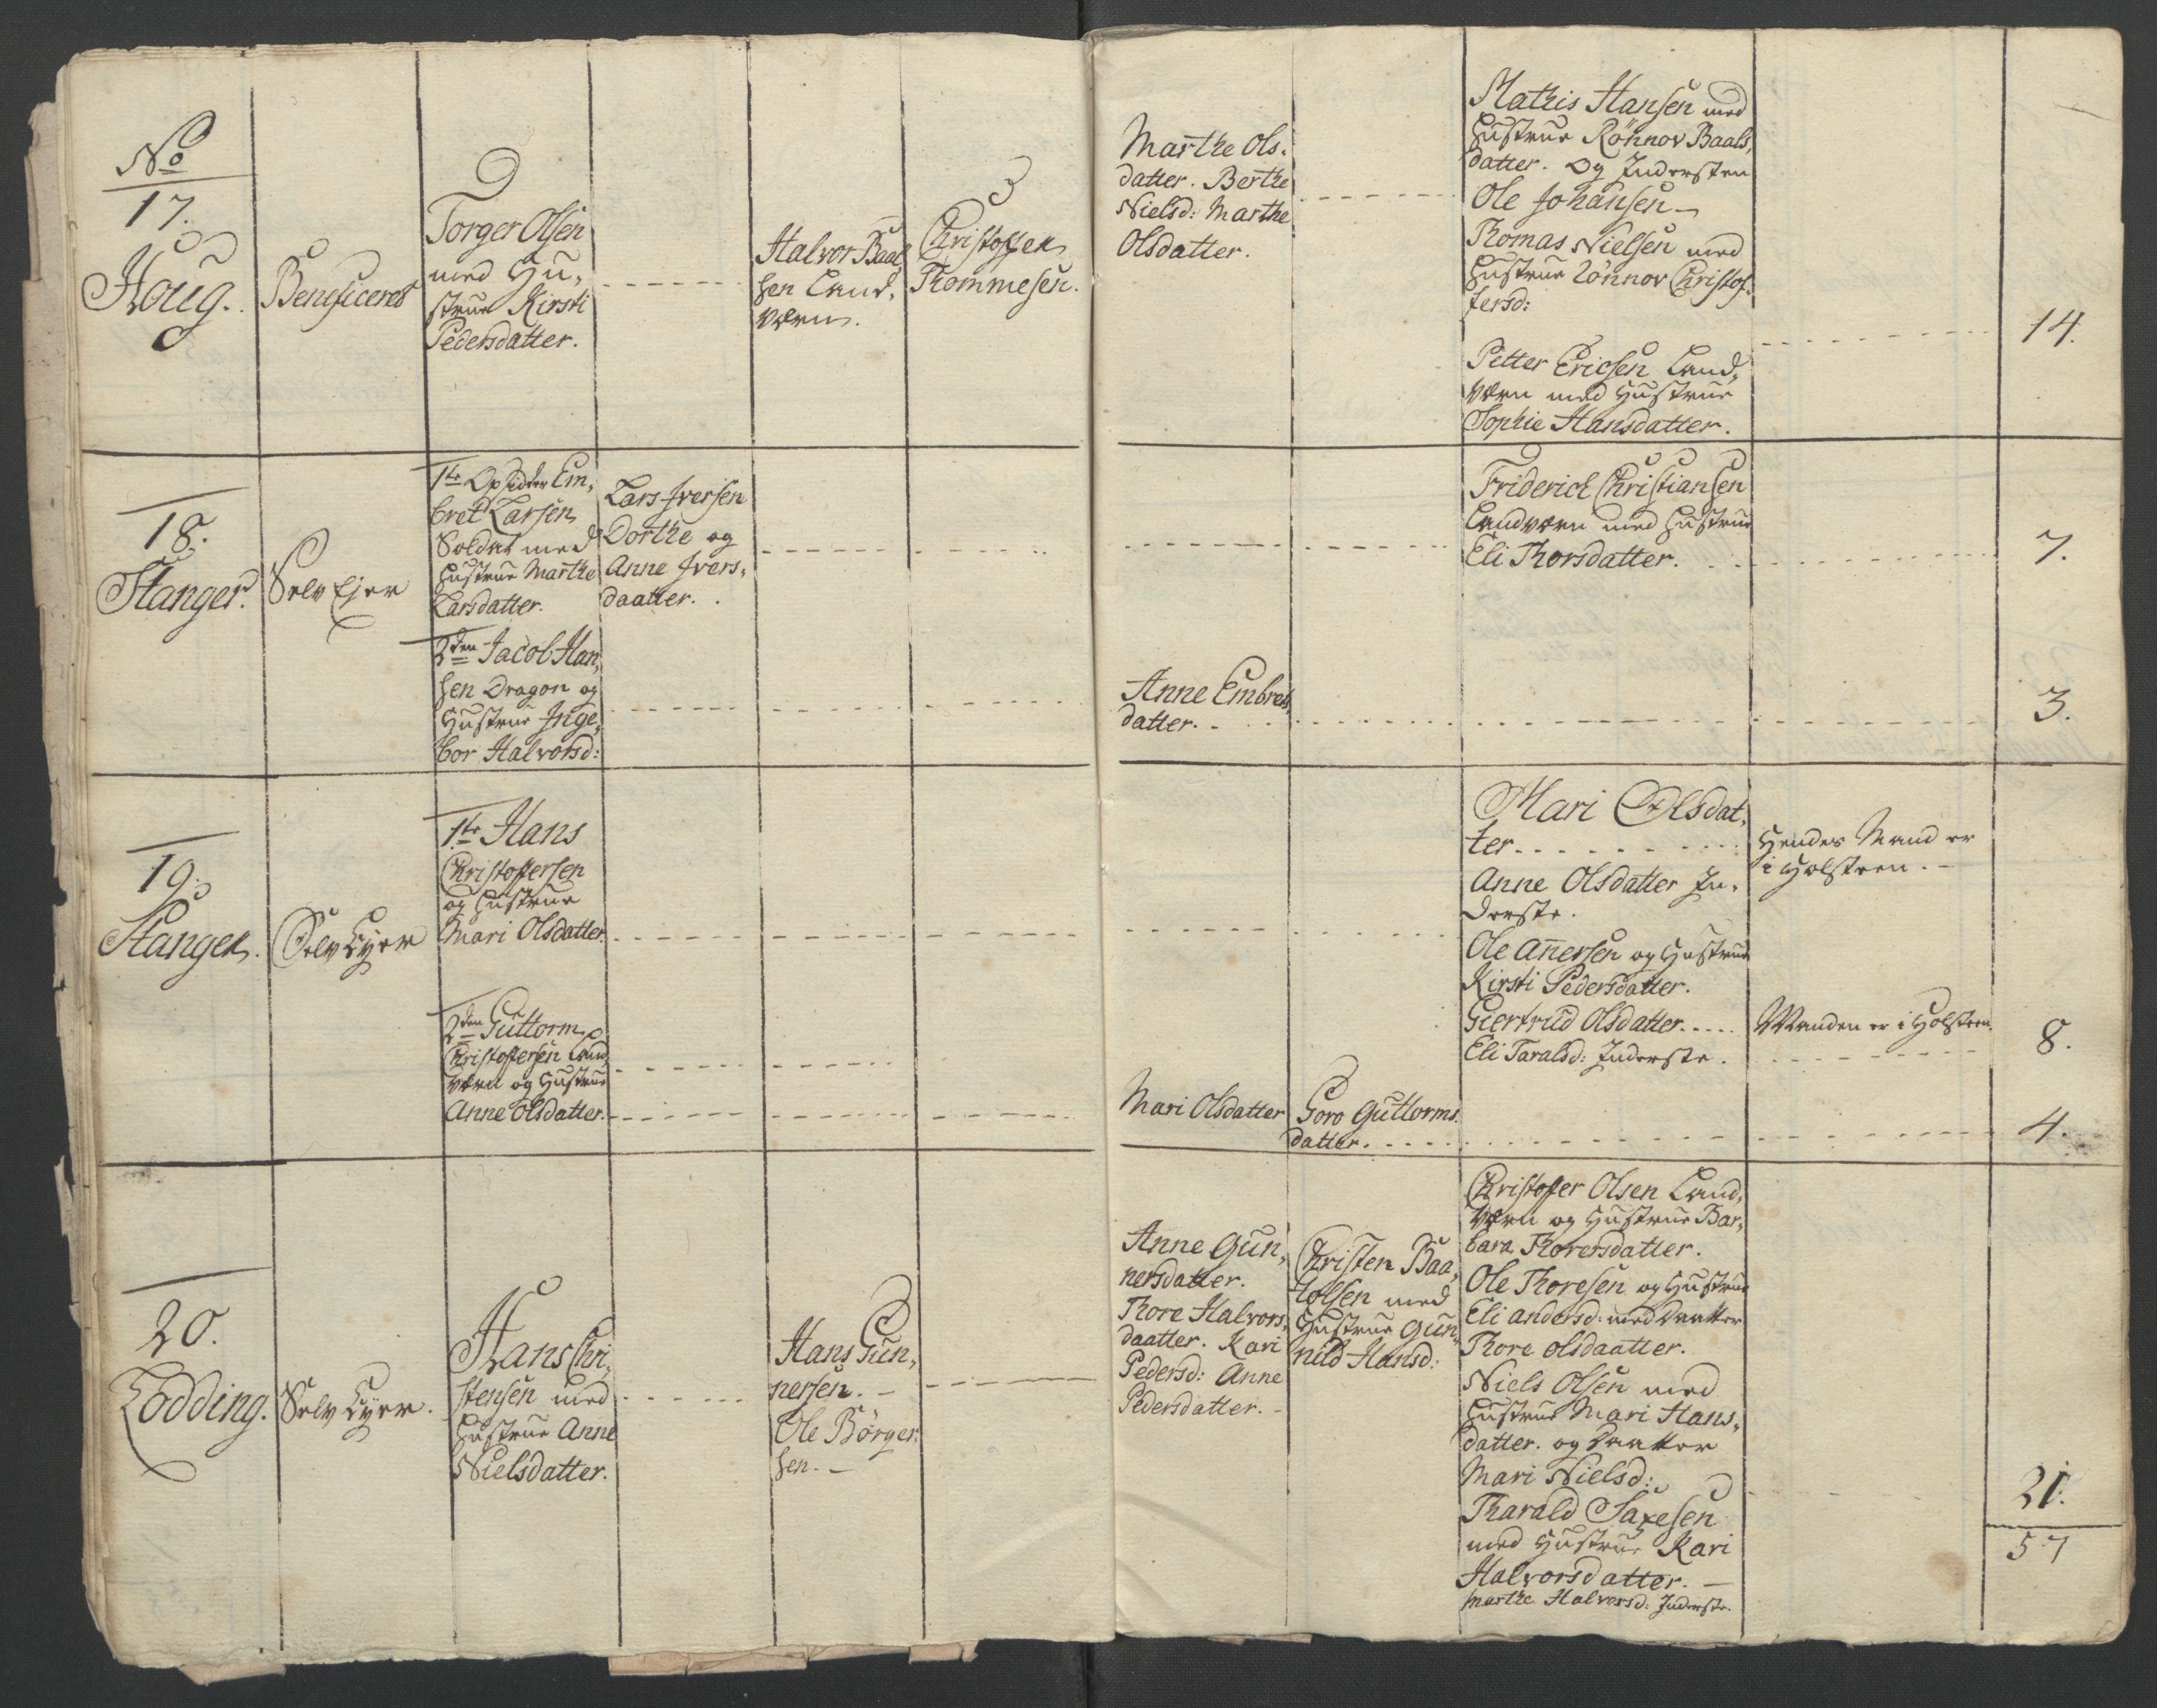 No
17.
Houg.
Beneficeret
Torger Olsen
med Hu-
strue Kirsti
Pedersdatter.
Halvor Baal
sen Land-
værn.
Christoffer
Thommesen.
Marthe Ols-
datter. Berthe
Nielsd: Marthe
Olsdatter.
Mathis Hansen med
Hustrue Rönnov Baals-
datter. og Indersten
Ole Johansen
Thomas Nielsen med
Hustrue Rönnov Christof-
fersd:
Petter Ericsen Land-
værn med Hustrue
Sophie Hansdatter.
14.
18.
Stanger.
Selv Ejer
1ste Opsidder Em-
bret Larsen
Soldat med
Hustrue Marthe
Larsdatter.
Lars Iversen
Dorthe og
Anne Ivers-
daatter.
Friderich Christiansen
Landværn med Hustrue
Eli Thorsdatter.
7.
2den Jacob Han-
sen Dragon og
Hustrue Inge-
bor Halvorsd:
Anne Embrets-
datter.
3.
19.
Stanger.
Selv Eyer
1ste Hans
Christoffersen
og Hustrue
Mari Olsdatter.
Mari Olsdat-
ter.
Hendes Mand er
i Holsteen.
Anne Olsdatter In-
derste.
Ole Anersen og Hustrue
Kirsti Pedersdatter.
Giertrud Olsdatter.
Manden er i Holsteen.
Eli Taralsd: Inderste.
8.
2den Guttorm
Christoffersen Land-
værn og Hustrue
Anne Olsdatter.
Mari Olsdatter
Goro Guttorms-
datter.
4.
20.
Lodding.
Selv Eyer.
Hans Chri-
stensen med
Hustrue Anne
Nielsdatter.
Hans Gun-
nersen.
Ole Börger-
sen.
Anne Gun-
nersdatter.
Thore Halvors-
daatter. Kari
Pedersd: Anne
Pedersdatter.
Christen Baa-
rdsen med
Hustrue Gun-
nild Hansd:
Christoffer Olsen Land-
værn og Hustrue Bar-
bara Thoresdatter.
Ole Thoresen og Hustrue
Eli Andersd: med Daatter
Thore Olsdaatter.
Niels Olsen med
Hustrue Mari Hans-
datter. og Daatter
Mari Nielsd:
Tharald Saxesen
med Hustrue Kari
Halvorsdatter.
Marthe Halvorsd: Inderste.
21.
57